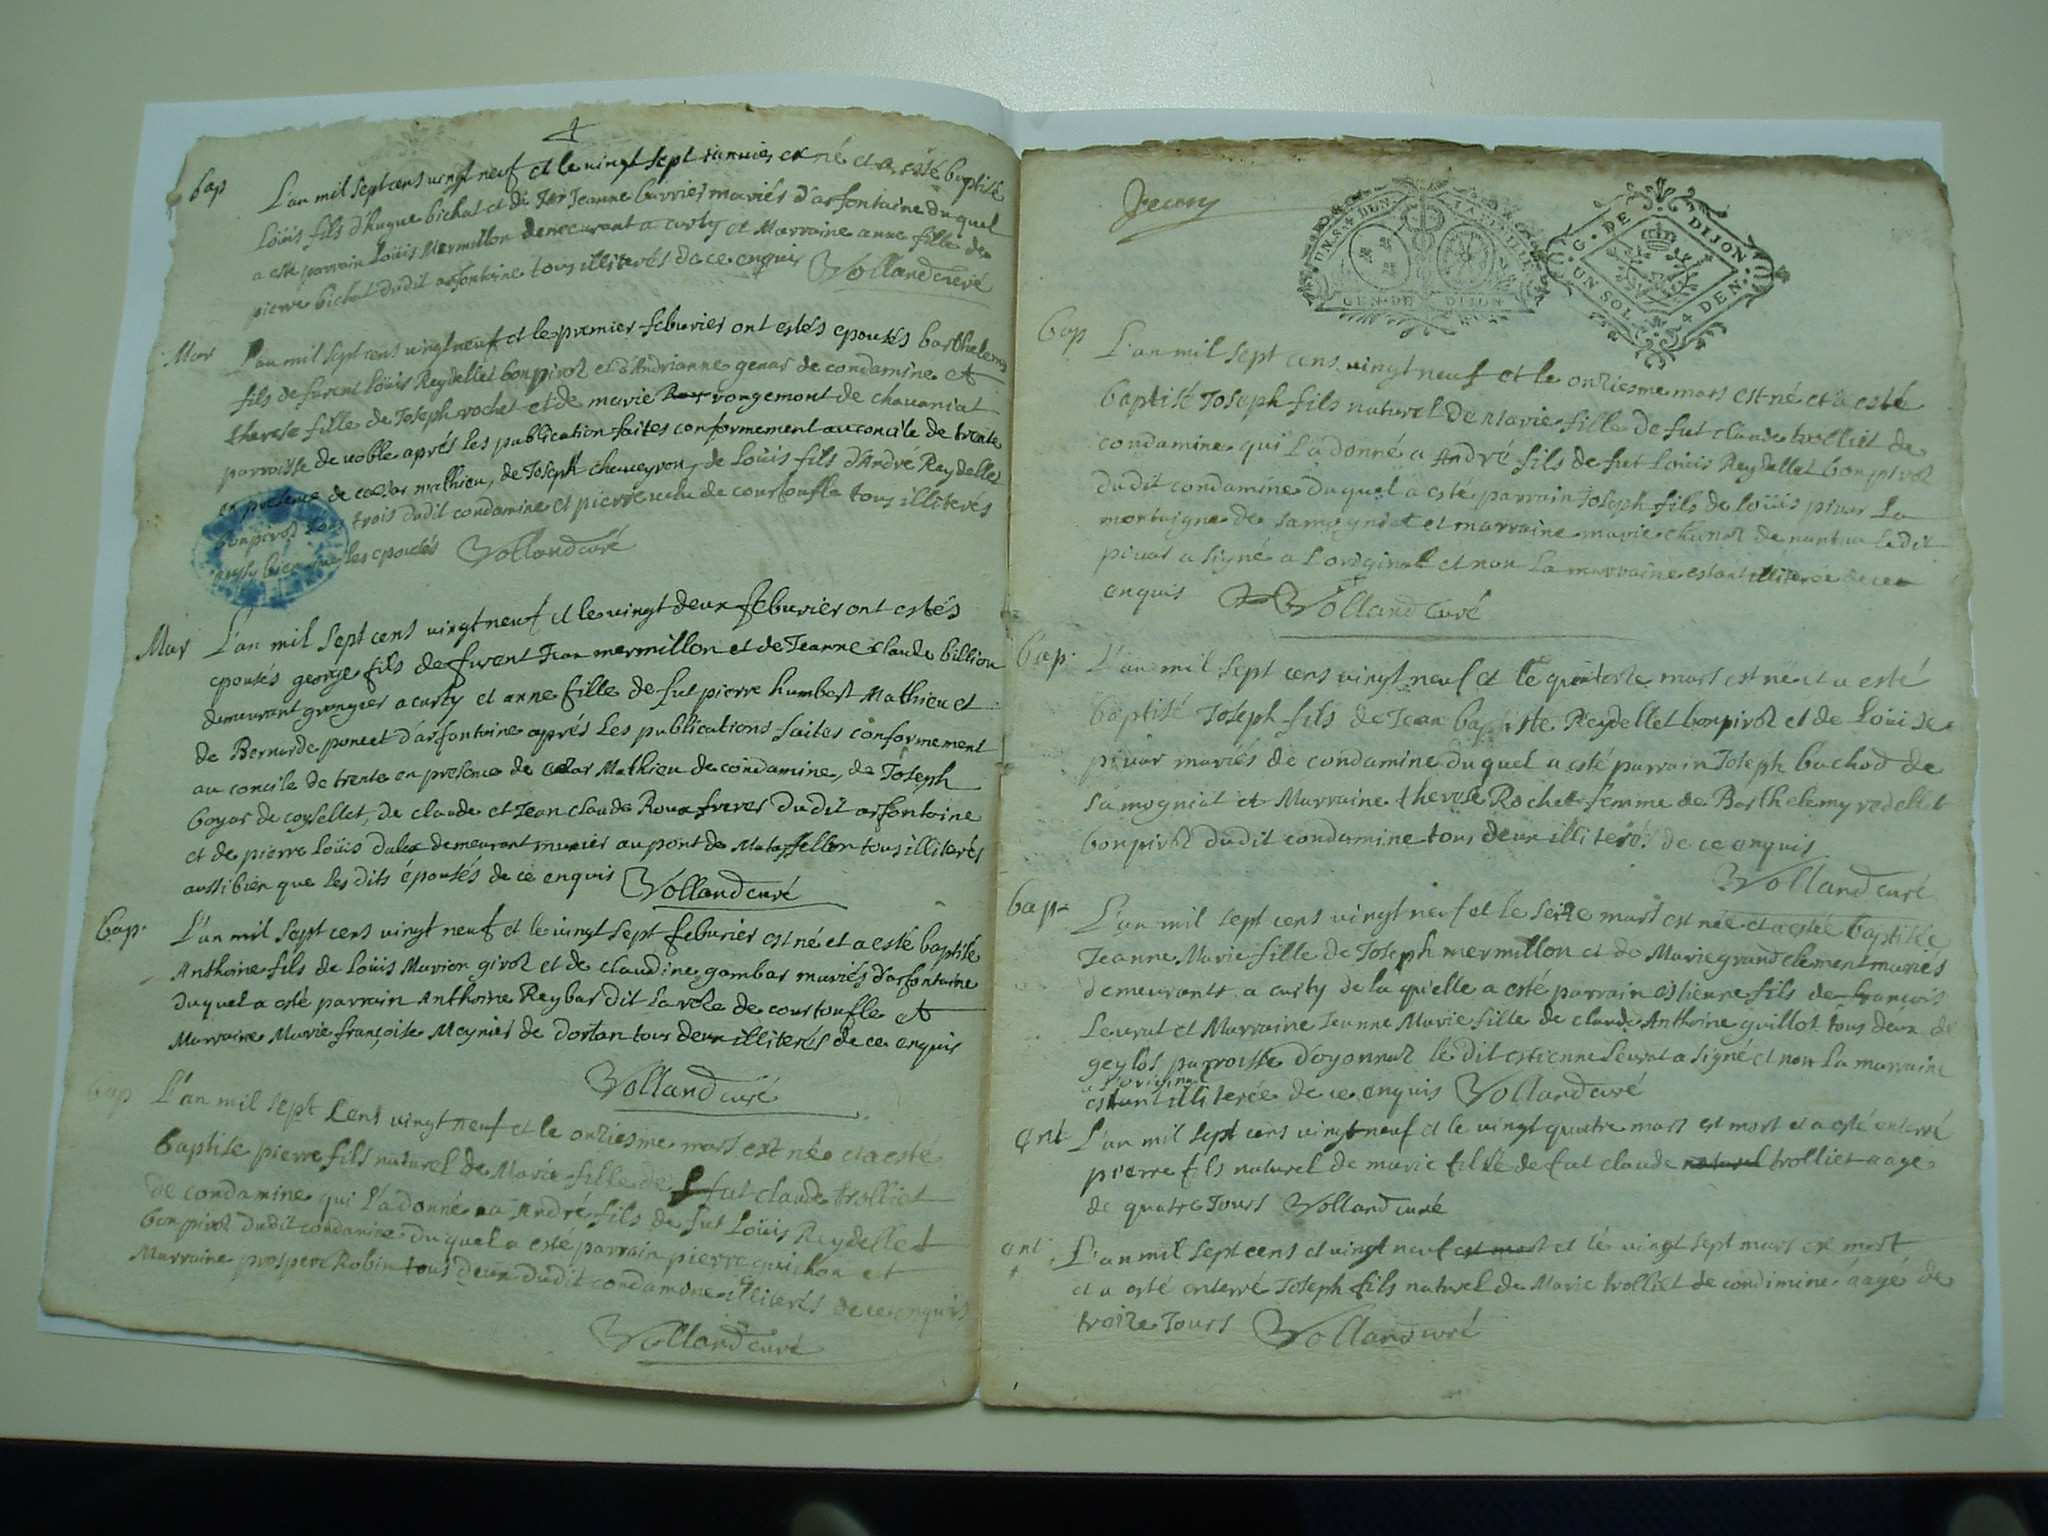 bap L'an mil sept cens vingt neuf et le vingt sept Janvier est né et a esté baptisé
Loüis fils d'Hugue bichat et de Jeanne burrier mariés d'arfontaine duquel
a esté parrain Loüis Mermillon demeurant a curty et Marraine anne fille de
pierre bichat dudit arfontaine tous illiterés de ce enquis Volland curé
Mar L'an mil sept cens vingt neuf et le premier feburier ont estés epousés barthelemy
fils de furent Loüis Reydellet bonpivol et d'Andrianne genar de condamine et
therese fille de Joseph rochet et de marie rougemont de chavaniat
parroisse de uoble aprés les publication faites conformement au concile de trente
en presence de cesar mathieu, de Joseph chaneyron, de Loüis fils d'André Reydellet
bonpivol tous trois dudit condamine et pierre uelu de courtoufle tous illiterés
aussy bien que les epousés Volland curé
Mar L'an mil sept cens vingt neuf et le vingt deux feburier ont estés
epousés george fils de furent Jean mermillon et de Jeanne claude billion
demeurant grangier a curty et anne fille de fut pierre humbert Mathieu et
de Bernarde poncet d'arfontaine aprés les publications faites conformement
au concile de trente en presence de cesar Mathieu de condamine, de Joseph
goyar de coysellet, de claude et Jean claude Roux freres dudit arfontaine
et de pierre Loüis dalex demeurant munier au pont de Mataffellon tous illiterés
aussi bien que les dits épousés de ce enquis Volland curé
bap. L'an mil sept cens vingt neuf et le vingt sept feburier est né et a esté baptisé
Anthoine fils de Loüis Marion girod et de claudine gambar mariés d'arfontaine
duquel a esté parrain Anthoine Reybar dit la role de courtoufle et
Marraine Marie françoise Meynier de dortan tous deux illiterés de ce enquis
Volland curé
bap L'an mil sept cens vingt neuf et le onziesme mars est né et a esté
baptise pierre fils naturel de Marie fille de fut claude trolliet
de condamine qui l'a donné a André fils de fut Loüis Reydellet
bonpivol dudit condamine duquel a esté parrain pierre guichon et
Marraine prospere Robin tous deux dudit condamine illiterés de ce enquis
Volland curé
UN S. 4 DEN. LA FEUILLE
GEN. DE DIJON
G. DE DIJON
UN SOL 4 DEN.
bap L'an mil sept cens vingt neuf et le onziesme mars est né et a esté
baptisé Joseph fils naturel de Marie fille de fut claude trolliet de
condamine qui l'a donné a André fils de fut Loüis Reydellet bonpivol
dudit condamine duquel a esté parrain Joseph fils de Loüis piuar la
montaigne de samogniat et marraine marie chanol de nantua ledit
piuar a signé a l'original et non la marraine estant illiterée de ce
enquis Volland curé
bap. L'an mil sept cens vingt neuf et le quatorze mars est né et a esté
baptisé Joseph fils de Jean baptiste Reydellet bonpivol et de Loüise
piuar mariés de condamine duquel a esté parrain Joseph bachod de
samogniat et Marraine therese Rochet femme de Barthelemy redellet
bonpivol dudit condamine tous deux illiterés de ce enquis
Volland curé
bap. L'an mil sept cens vingt neuf et le seize mars est née et a estée baptisée
Jeanne Marie fille de Joseph mermillon et de Marie grandclement mariés
demeurants a curty de la quelle a esté parrain estienne fils de françois
Leurat et Marraine Jeanne Marie fille de claude Anthoine guillot tous deux de
geylos parroisse d'oyonnax le dit estienne Leurat a signé et non la marraine
a l'original
estant illiterée de ce enquis Volland curé
ent L'an mil sept cens vingt neuf et le vingt quatre mars est mort et a esté enterré
pierre fils naturel de marie fille de fut claude naturel trolliet aage
de quatre Jours Volland curé
ent L'an mil sept cens et vingt neuf est mort et le vingt sept mars est mort
et a esté enterré Joseph fils naturel de Marie trolliet de condimine áagé de
treize Jours Volland curé